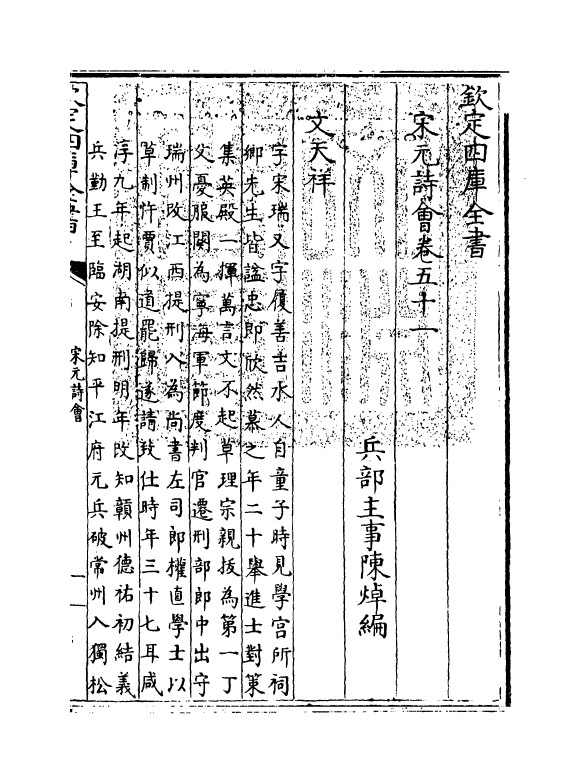 欽定四庫全書
宋元詩會卷五十一
兵部主事陳焯編
文天祥
字宋瑞又字履善吉水人自童子時見學宫所祠
鄉先生皆諡忠即欣然慕之年二十舉進士對策
集英殿一揮萬言文不起草理宗親拔為第一丁
父憂服闋為寧海軍節度判官遷刑部郎中出守
瑞州改江西提刑入為尚書左司郎權直學士以
草制忤賈似道罷歸遂請致仕時年三十七耳咸
淳九年起湖南提刑明年改知贛州德祐初結義
兵勤王至臨安除知平江府元兵破常州入獨松
欽定四庫全書
宋元詩會
一